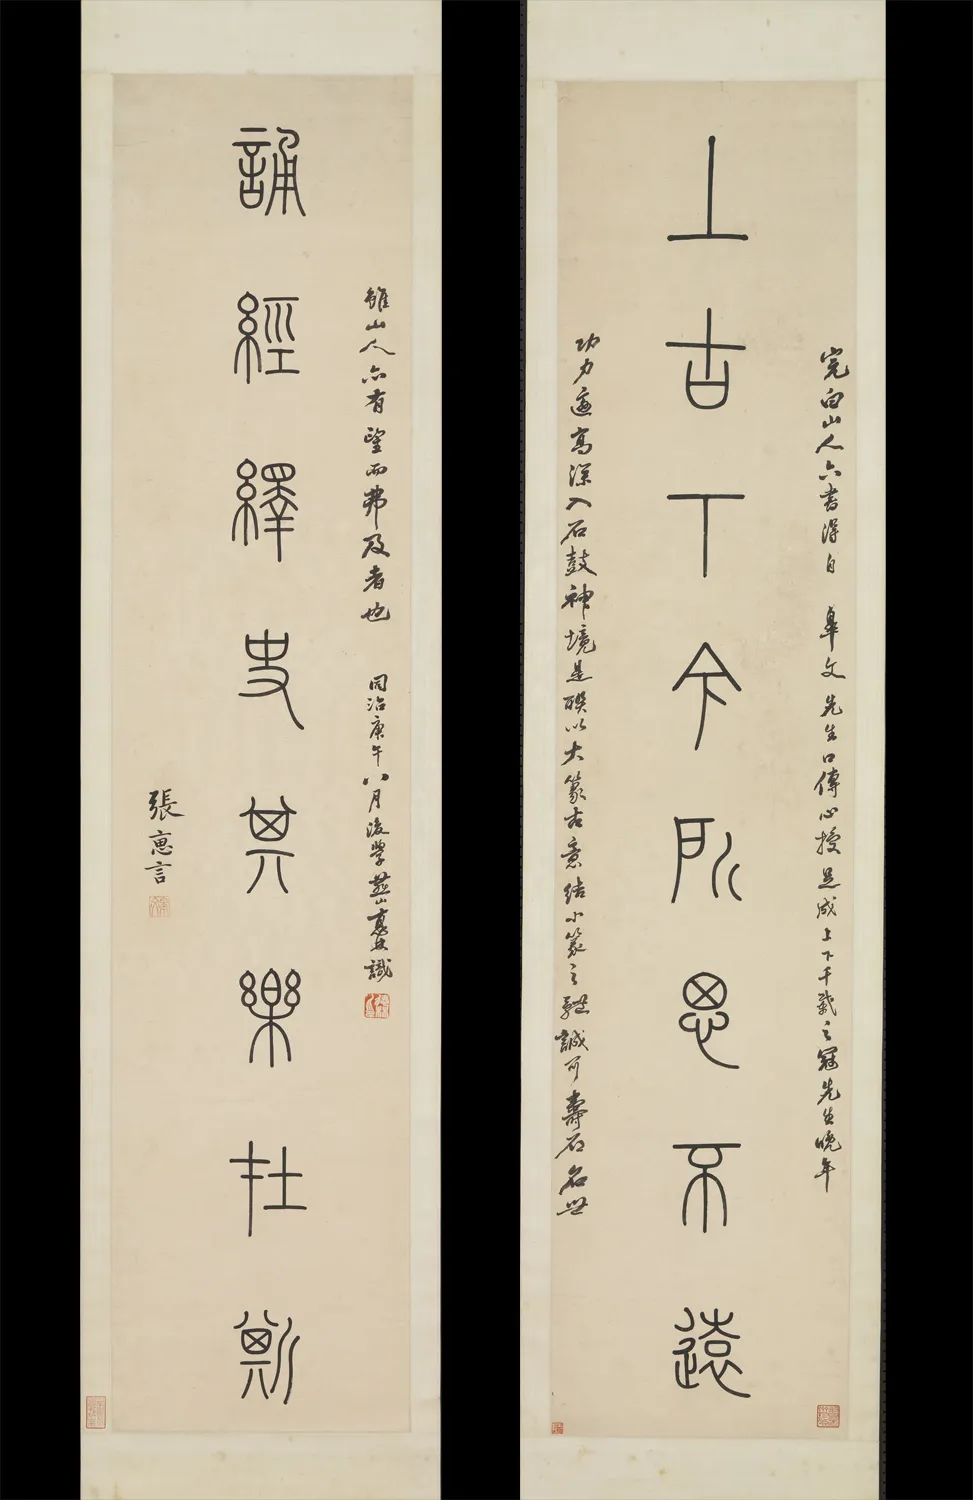 上古下今所思不遠
誦經繹史其樂在斯
完白山人六書得自 皋文先生口傳心授是成上下千載之冠先生晚年
功力高深入石鼓神境是聯以大篆古意結小篆之體誠可壽石名世
雖山人亦有望而弗及者也 同治庚午八月後學燕山識
張惠言